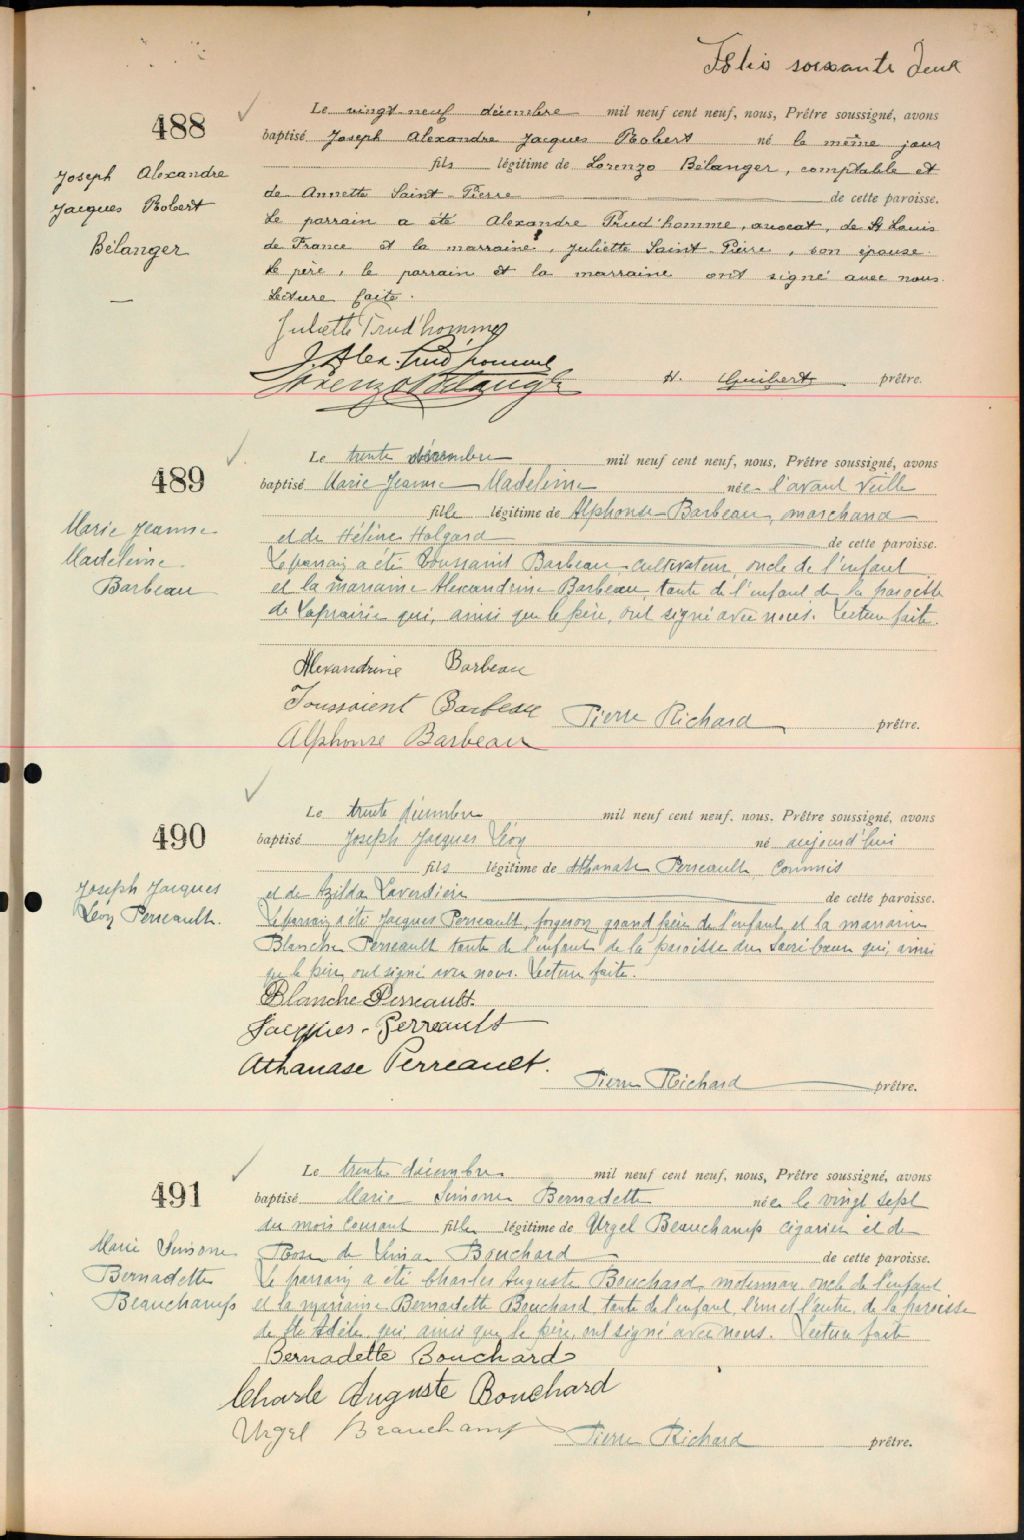 Folio soixante deux
488
Joseph Alexandre
Jacques Robert
Bélanger
Le vingt-neuf décembre mil neuf cent neuf, nous, Prêtre soussigné, avons
baptisé Joseph Alexandre Jacques Robert né le même jour
fils légitime de Lorenzo Bélanger, comptable et
de Annette Saint-Pierre de cette paroisse.
Le parrain a été Alexandre Prud'homme, avocat, de St Louis
de France et la marraine, Juliette Saint-Pierre, son épouse.
Le père, le parrain et la marraine ont signé avec nous.
Lecture faite.
Juliette Prud'homme
J. Alex. Prud'homme
Lorenzo Bélanger
H. Guibert prêtre.
489
Marie Jeanne
Madeleine
Barbeau
Le trente décembre mil neuf cent neuf, nous, Prêtre soussigné, avons
baptisé Marie Jeanne Madeleine née l'avant veille
fille légitime de Alphonse Barbeau, marchand
et de Hélène Holgard de cette paroisse.
Le parrain a été Toussaint Barbeau cultivateur, oncle de l'enfant
et la marraine Alexandrine Barbeau tante de l'enfant de la paroisse
de Laprairie qui, ainsi que le père, ont signé avec nous. Lecture faite.
Alexandrine Barbeau
Toussaient Barbeau
Alphonse Barbeau
Pierre Richard prêtre.
490
Joseph Jacques
Léon Perreault.
Le trente décembre mil neuf cent neuf, nous, Prêtre soussigné, avons
baptisé Joseph Jacques Léon né aujourd'hui
fils légitime de Athanase Perreault, commis
et de Azilda Laverdière de cette paroisse.
Le parrain a été Jacques Perreault, forgeron, grand père de l'enfant, et la marraine
Blanche Perreault tante de l'enfant de la paroisse du Sacré Coeur qui, ainsi
que le père, ont signé avec nous. Lecture faite.
Blanche Perreault.
Jacques-Perreault
Athanase Perreault.
Pierre Richard prêtre.
491
Marie Simone
Bernadette
Beauchamp
Le trente décembre mil neuf cent neuf, nous, Prêtre soussigné, avons
baptisé Marie Simone Bernadette née le vingt sept
du mois courant fille légitime de Urgel Beauchamp cigarier et de
Rose de Lima Bouchard de cette paroisse.
Le parrain a été Charles Auguste Bouchard, motorman, oncle de l'enfant
et la marraine Bernadette Bouchard, tante de l'enfant, l'un et l'autre de la paroisse
de Ste Adèle qui ainsi que le père, ont signé avec nous. Lecture faite
Bernadette Bouchard
Charle Auguste Bouchard
Urgel Beauchamp
Pierre Richard prêtre.